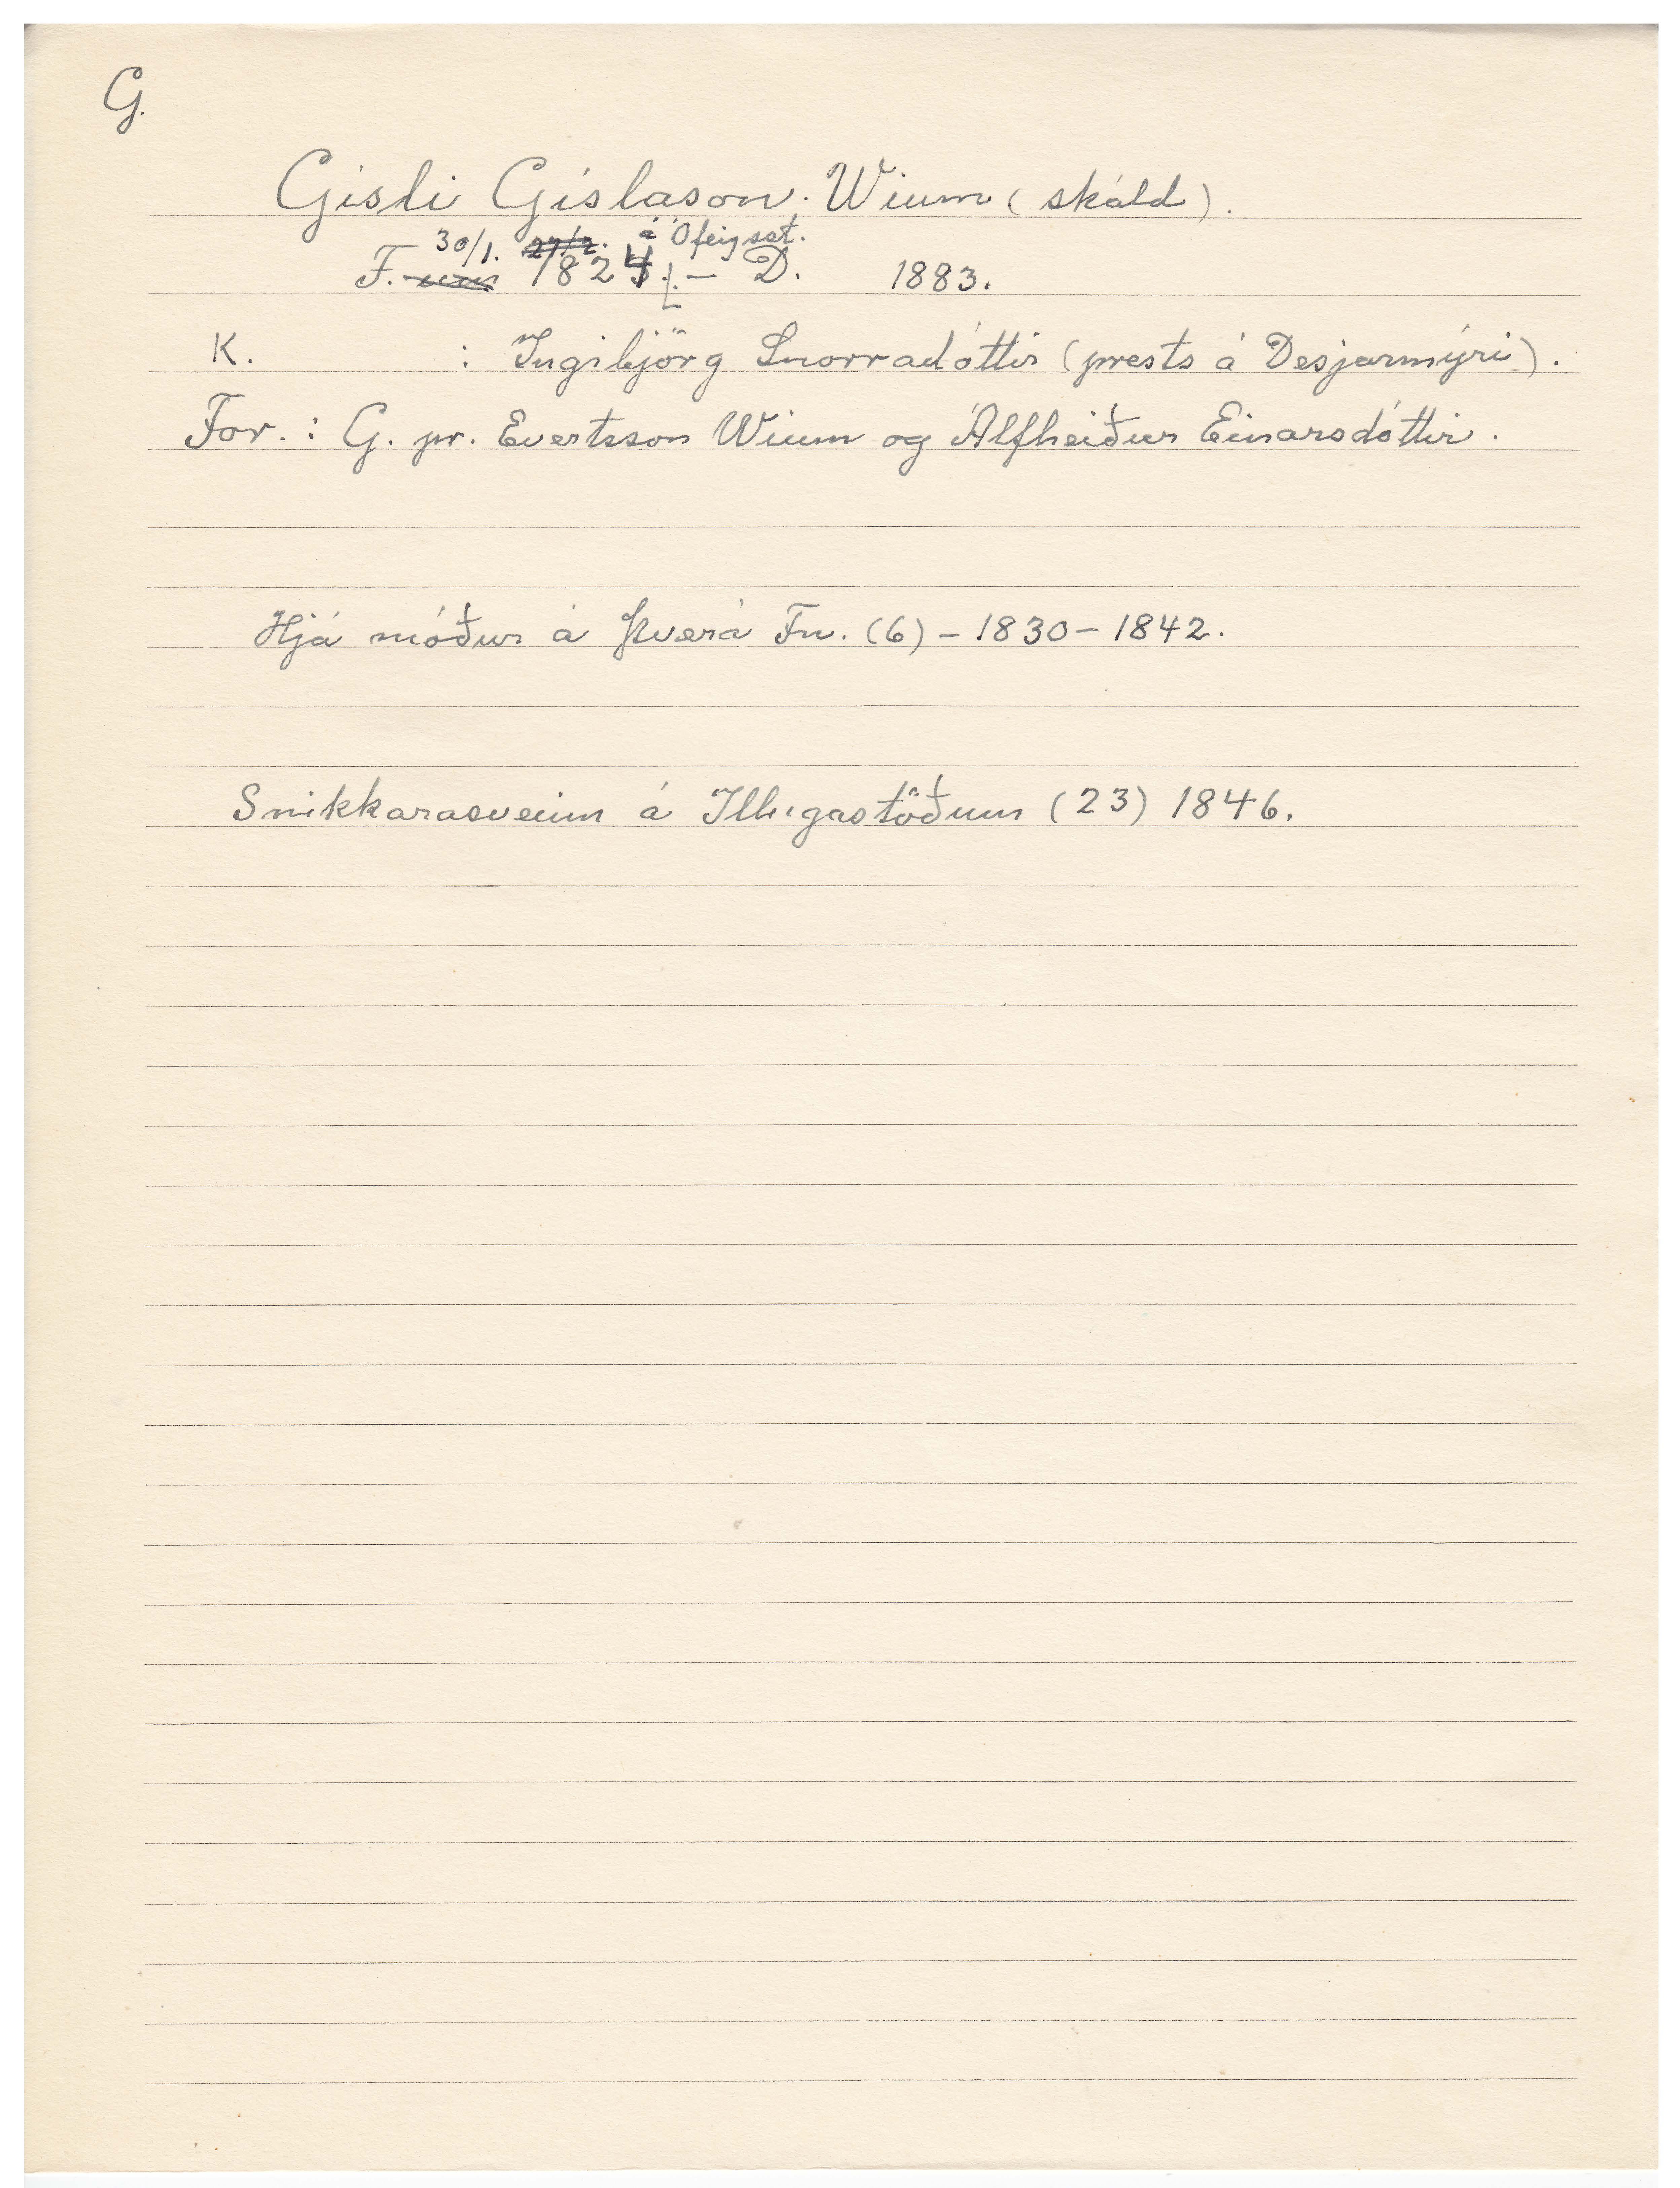 G.
Gísli Gíslason. Wium (skáld).
30/1. 27/2. á Ófeigsst.
F. um 1824. - D. 1883.
K. : Ingibjörg Snorradóttir (prests á Desjarmýri).
For. : G. pr. Evertsson Wium og Álfheiður Einarsdóttir.
Hjá móður á Þverá Fn. (6) - 1830 - 1842.
Snikkarasveinn á Illugastöðum (23) 1846.